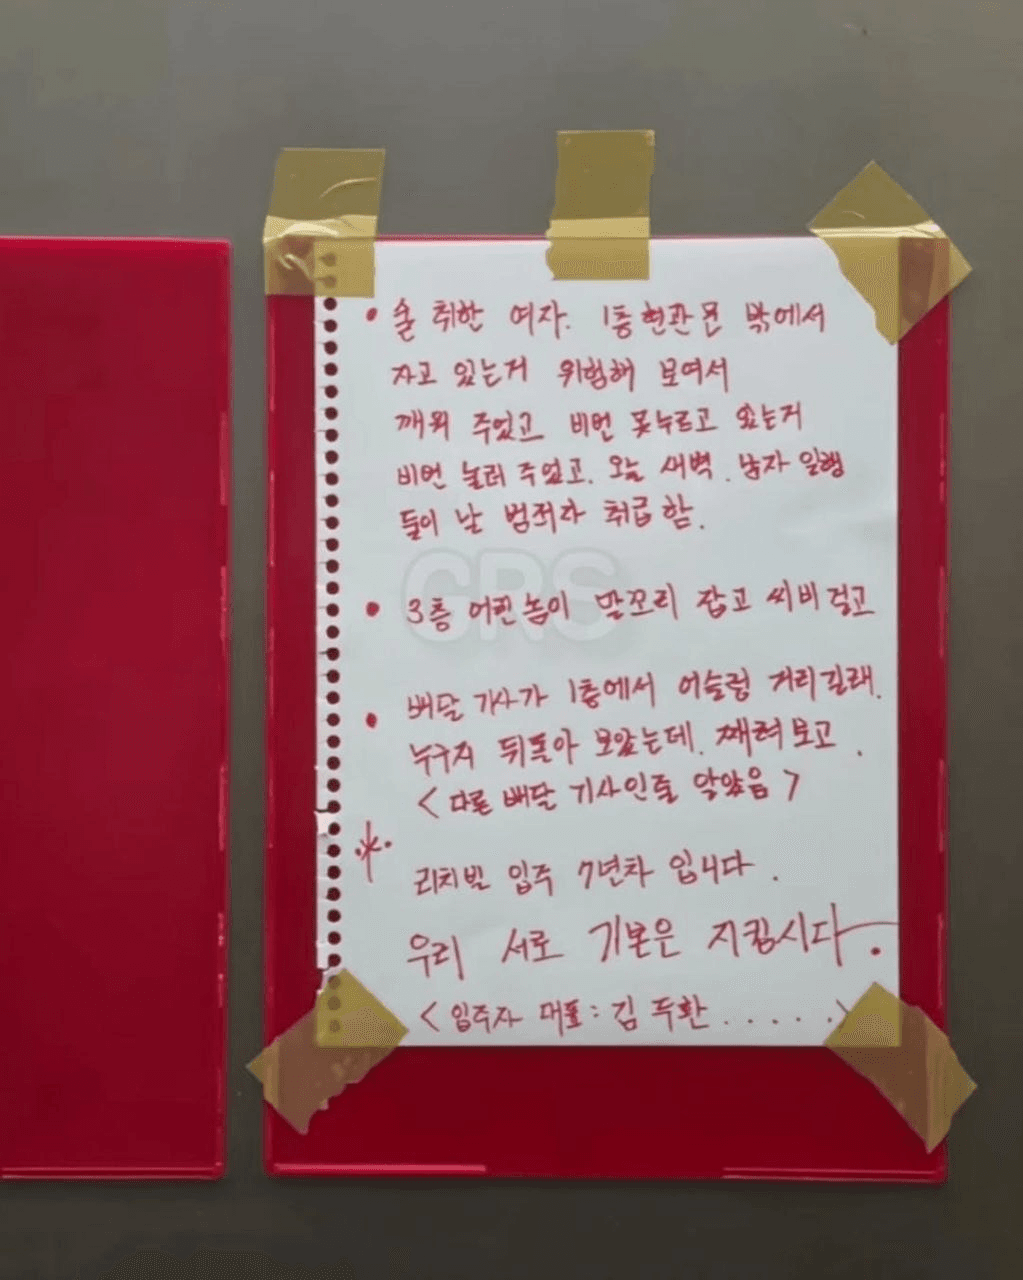 • 술 취한 여자. 1층 현관문 밖에서
자고 있는거 위험해 보여서
깨워 주었고 비번 못누르고 있는거
비번 눌러 주었고. 오늘 새벽. 남자 일행
들이 날 범죄자 취급함.
GRS
• 3층 어린놈이 말꼬리 잡고 씨비걸고
• 배달 기사가 1층에서 어슬렁 거리길래.
누구지 뒤돌아 보았는데. 째려보고.
<다른 배달 기사인줄 알았음>
※ 리치빌 입주 7년차 입니다.
우리 서로 기본은 지킵시다.
<입주자 대표: 김두환 . . . . . .>